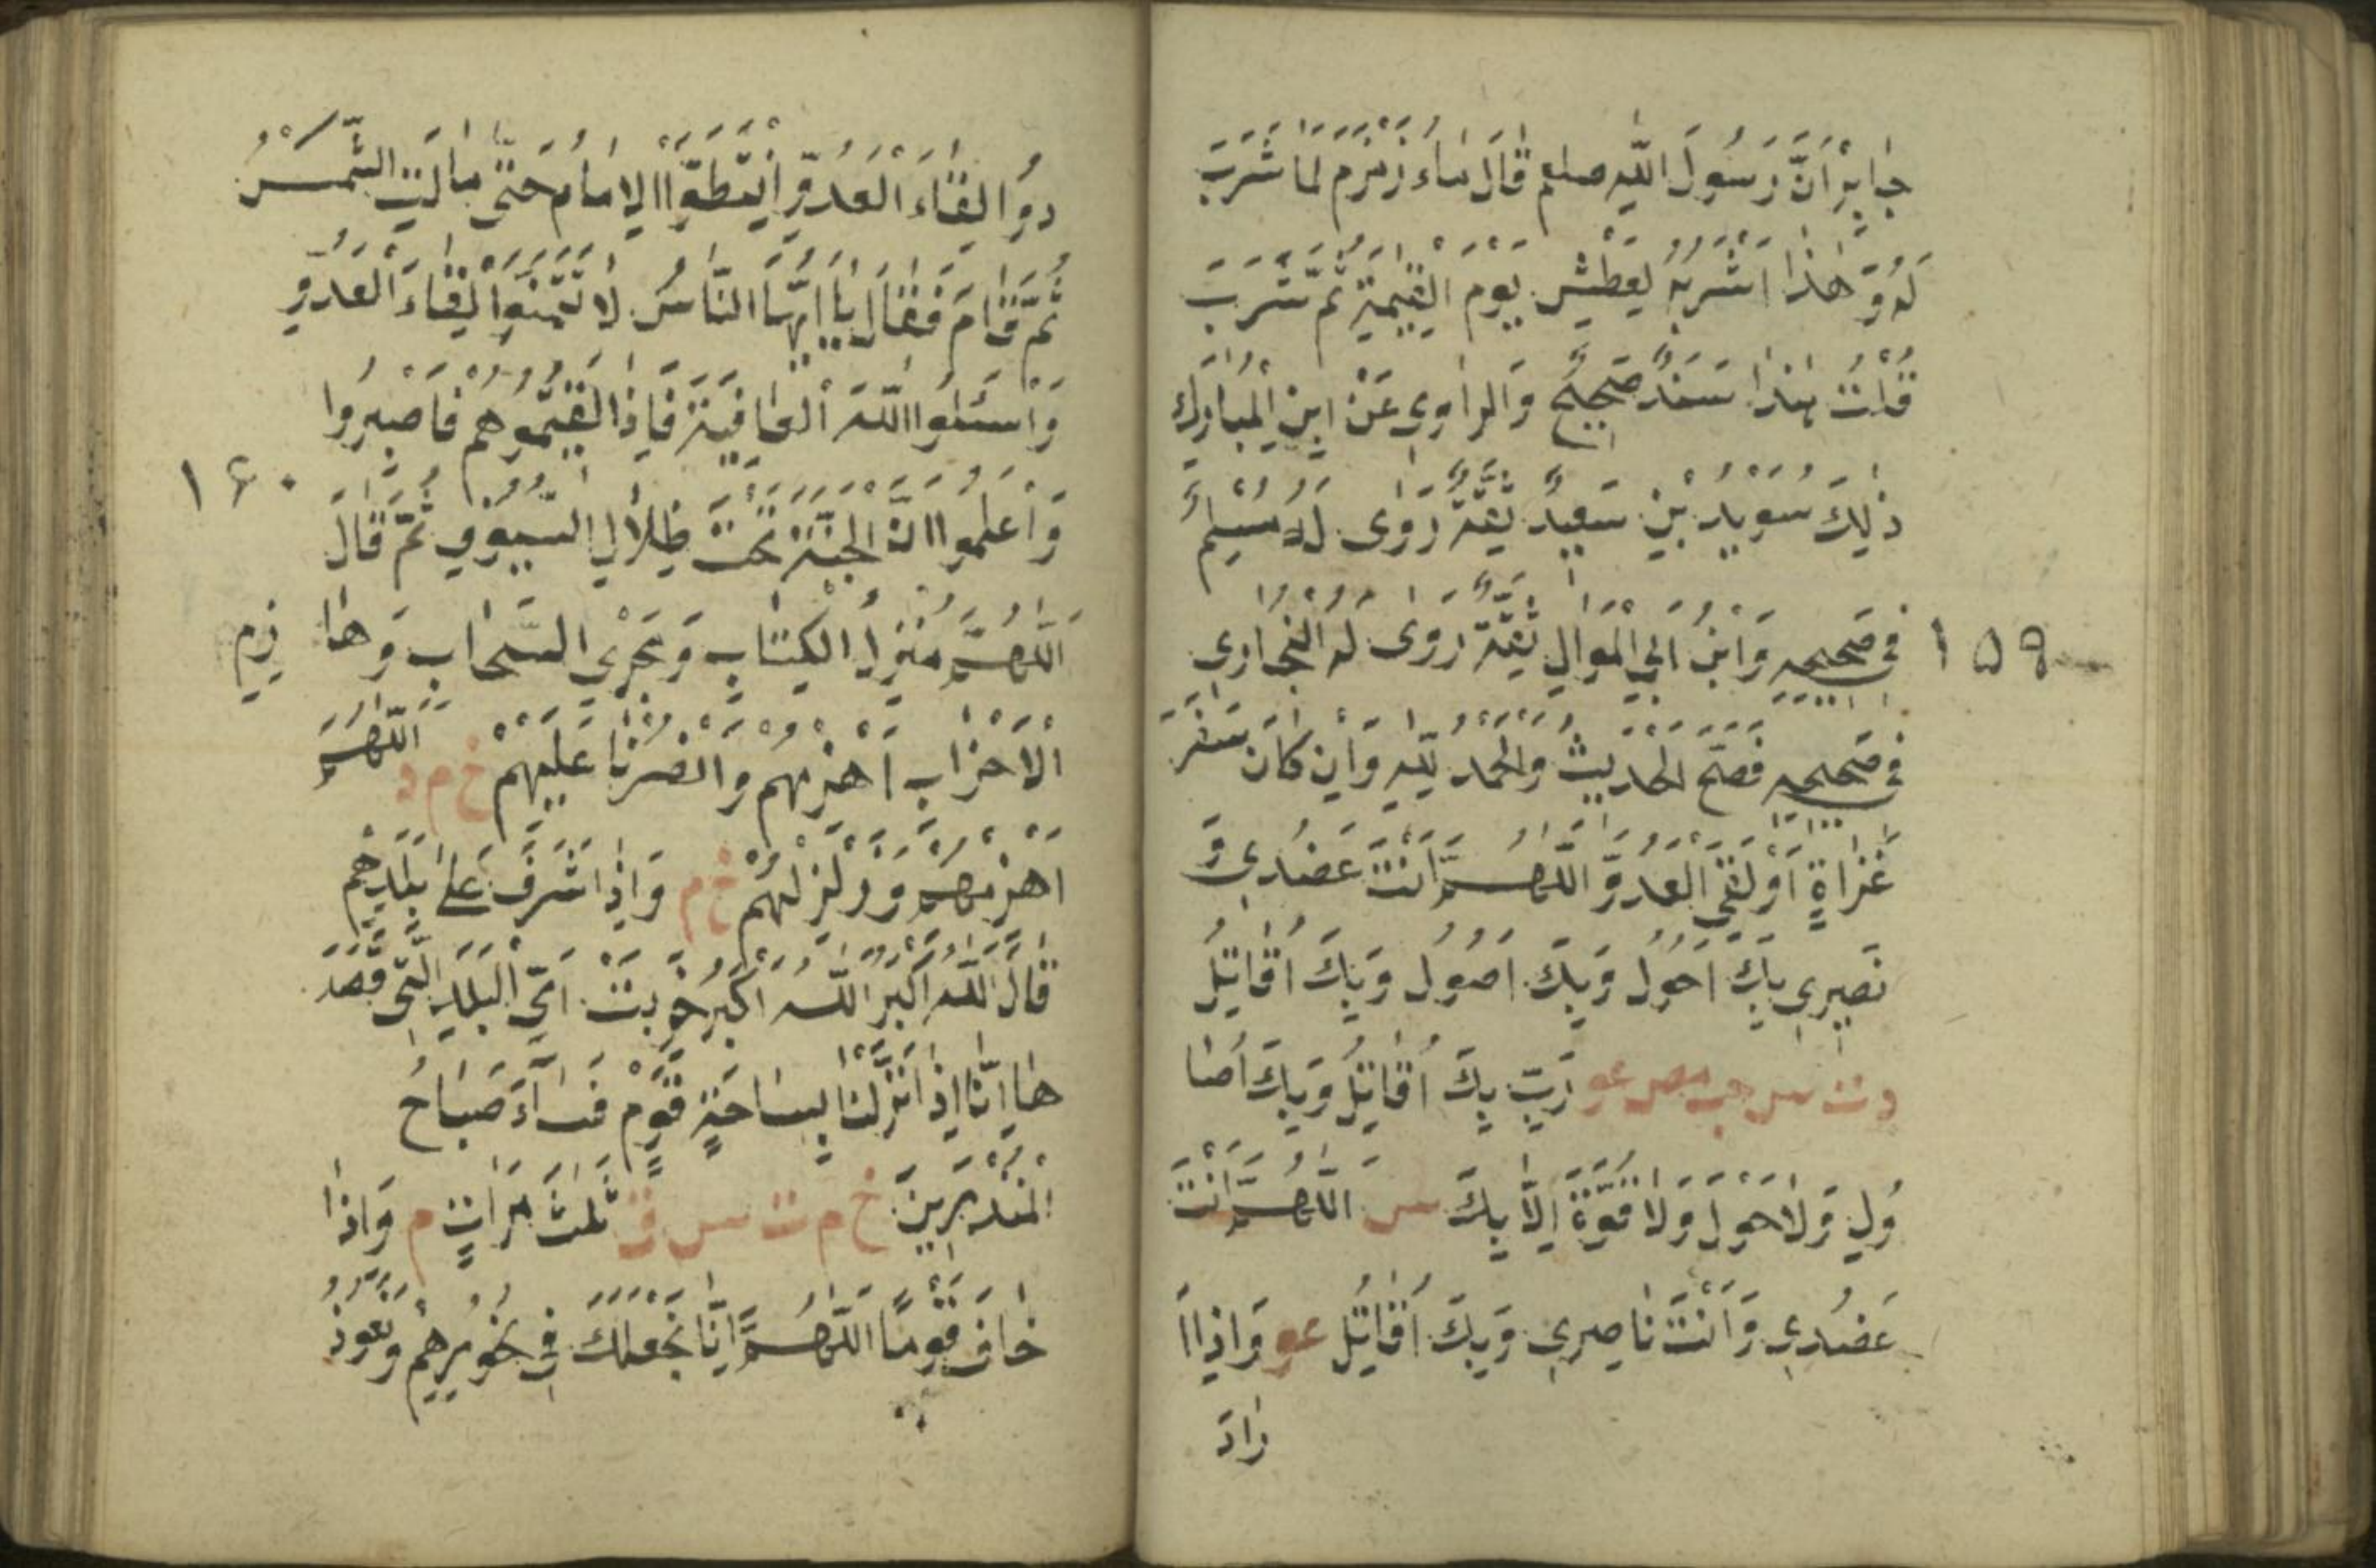 جابِرٍ اَنَّ رَسُولَ اللّٰهِ صلعم قَالَ مَاءُ زَمْزَمَ لِمَا شُرِبَ
لَهُ وَهٰذَا اَشْرَبُهُ لِعَطْشِ يَوْمَ الْقِيٰمَةِ ثُمَّ شَرِبَ
قُلْتُ هٰذَا سَنَدٌ صَحِيحٌ وَالرَّاوِي عَنْ ابْنِ الْمُبَارَكِ
ذٰلِكَ سُوَيْدُ بْنِ سَعِيدٌ ثِقَةٌ رَوٰى لَهُ مُسْلِمٌ
فِي صَحِيحِهِ وَابْنُ اَبِي الْمَوَالِ ثِقَةٌ رَوٰى لَهُ الْبُخَارِي
١٥٩
فِي صَحِيحِهِ فَصَحَّ الْحَدِيثُ وَالْحَمْدُ لِلّٰهِ وَاِنْ كَانَ سَفَرَ
غَزَاةٍ اَوْ لَقِيَ الْعَدُوَّ اللّٰهُمَّ اَنْتَ عَضُدِي وَ
نَصِيرِي بِكَ اَحُولُ وَبِكَ اَصُولُ وَبِكَ اُقَاتِلُ
د ت س حب مص عو رَبِّ بِكَ اُقَاتِلُ وَبِكَ اُصَا
وِلُ وَلَا حَوْلَ وَلَا قُوَّةَ اِلَّا بِكَ س اللّٰهُمَّ اَنْتَ
عَضُدِي وَاَنْتَ نَاصِرِي وَبِكَ اُقَاتِلُ عو وَاِذَا ا
رَادَ
دُوا لِقَاءَ الْعَدُوِّ اِنْتَظَرَ الْاِمَامُ حَتَّى مَالَتِ الشَّمْسُ
ثُمَّ قَامَ فَقَالَ يَا اَيُّهَا النَّاسُ لَا تَتَمَنَّوْا لِقَاءَ الْعَدُوِّ
وَاسْئَلُوا اللّٰهَ الْعَافِيَةَ فَاِذَا لَقِيتُمُوهُمْ فَاصْبِرُوا
١٦٠
وَاعْلَمُوا اَنَّ الْجَنَّةَ تَحْتَ ظِلَالِ السُّيُوفِ ثُمَّ قَالَ
اَللّٰهُمَّ مُنْزِلَ الْكِتَابِ وَمُجْرِيَ السَّحَابِ وَهَا زِمَ
الْاَحْزَابِ اَهْزِمْهُمْ وَانْصُرْنَا عَلَيْهِمْ خ م د اَللّٰهُمَّ
اهْزِمْهُمْ وَزَلْزِلْهُمْ خ م وَاِذَا شَرَفَ عَلَى بَلَدِهِمْ
قَالَ اللّٰهُ اَكْبَرُ اللّٰهُ اَكْبَرُ خَرِبَتْ اَيِ الْبَلَدِ الَّتِي قَصَدَ
هَا اِنَّا اِذَا نَزَلْنَا بِسَاحَةِ قَوْمٍ فَسَاءَ صَبَاحُ
الْمُنْذَرِينَ خ م ت س ق ثَلٰثَ مَرَّاتٍ م وَاِذَا
خَافَ قَوْمًا اَللّٰهُمَّ اِنَّا نَجْعَلُكَ فِي نُحُورِهِمْ وَنَعُوذُ